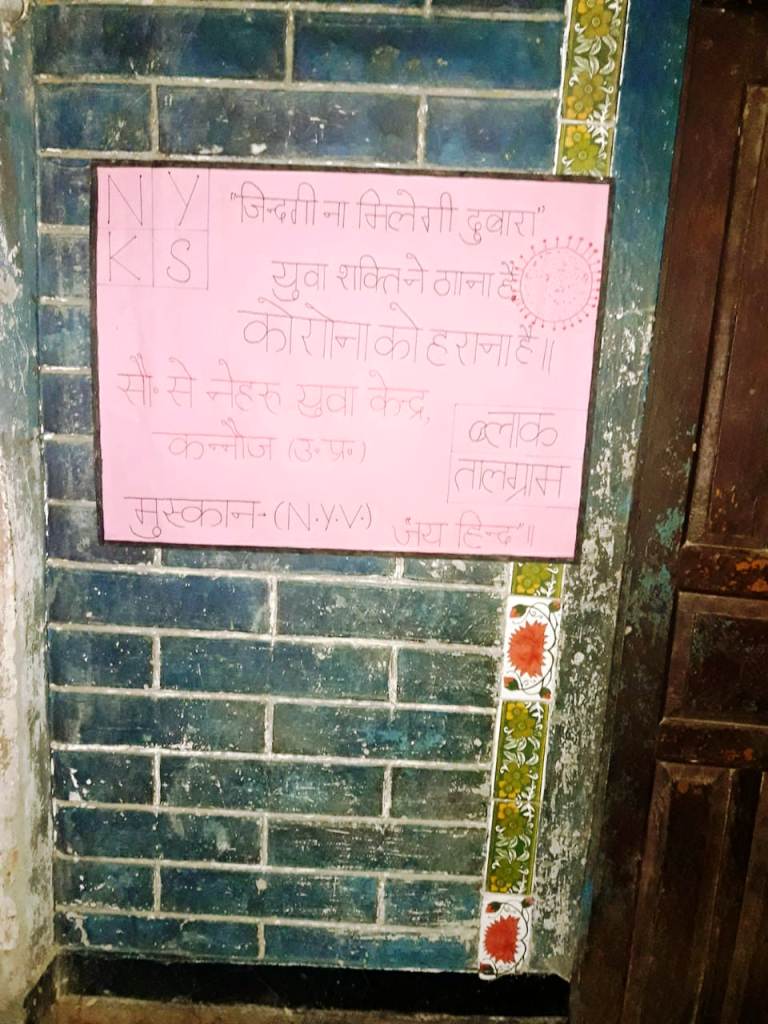 N Y
K S
"जिन्दगी ना मिलेगी दुबारा"
युवा शक्ति ने ठाना है
कोरोना को हराना है॥
सौ॰ से नेहरु युवा केन्द्र,
कन्नौज (उ॰ प्र॰)
ब्लाक
तालग्राम
मुस्कान॰ (N.Y.V.)
"जय हिन्द"॥